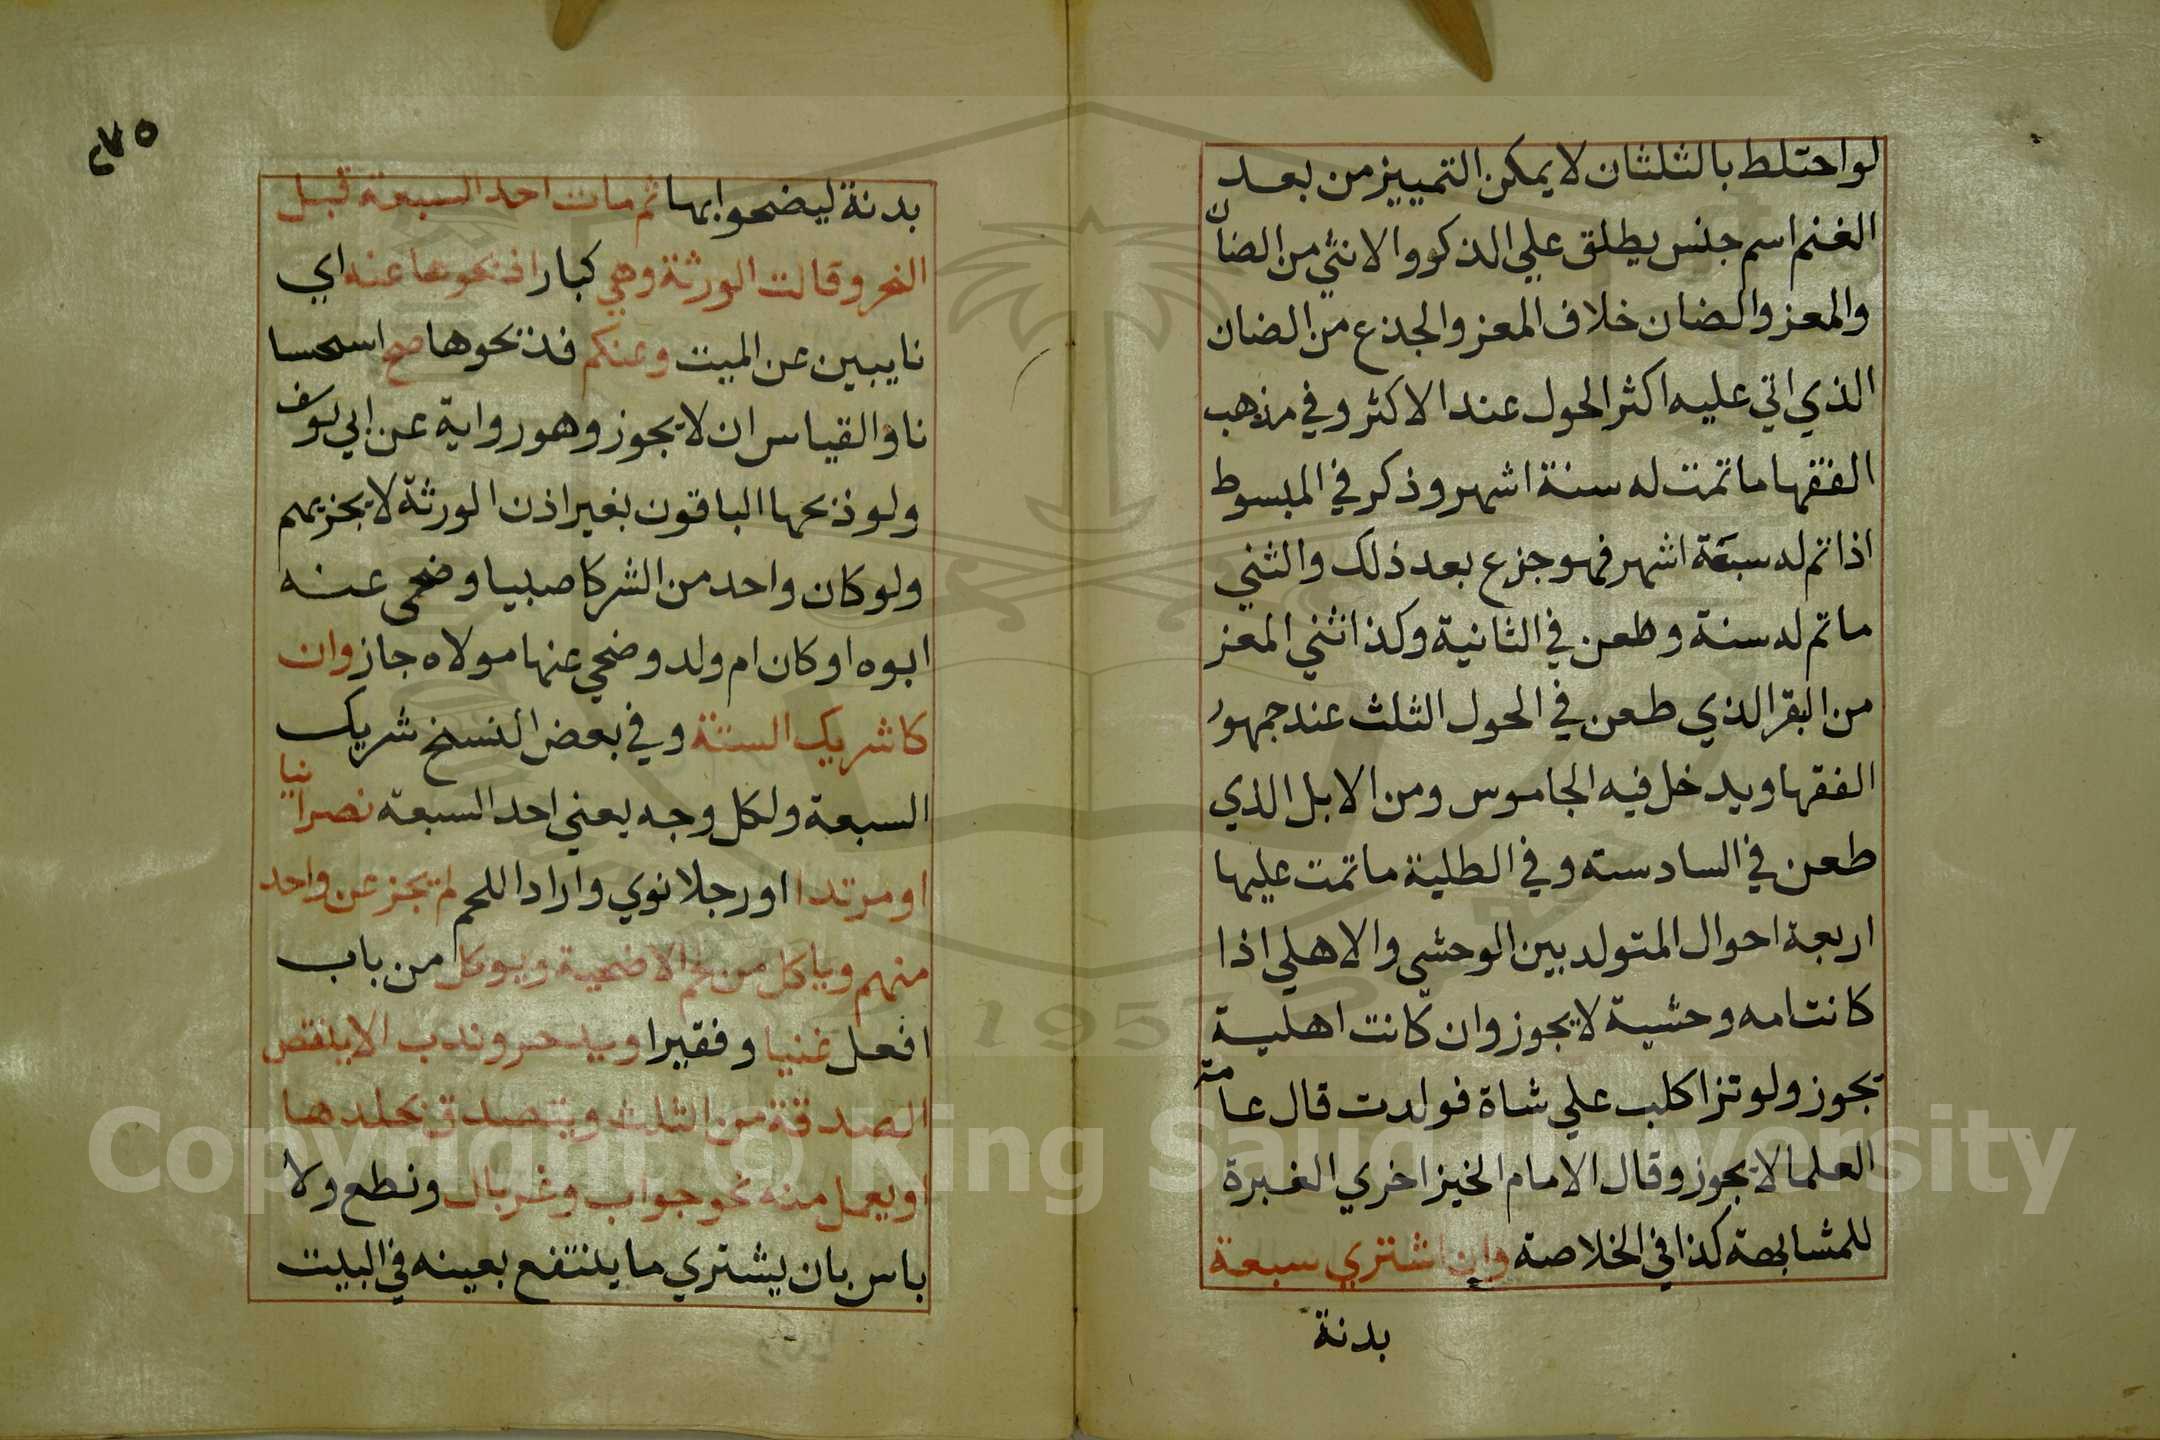 لو احتلط بالثلثان لا يمكن التمييز من بعد
الغنم اسم جنس يطلق علي الذكو والانثي من الضان
والمعز والضان خلاف المعز والجذع من الضان
الذي اتي عليه اكثر الحول عند الاكثر وفي مذهب
الفقها ما تمت له ستة اشهر وذكر في المبسوط
اذا تم له سبعة اشهر فهو جزع بعد ذلك والثني
ما تم له سنة وطعن في الثانية وكذا ثني المعز
من البقر الذي طعن في الحول الثلث عند جمهور
الفقها ويدخل فيه الجاموس ومن الابل الذي
طعن في السادسته وفي الطلية ما تمت عليها
اربعة احوال المتولد بين الوحشي والاهلي اذا
كانت امه وحشية لا يجوز وان كانت اهلية
يجوز ولو تزا كلب علي شاة فولدت قال عامة
العلما لا يجوز وقال الامام الخيز اخري الغبرة
للمشابهة كذا في الخلاصة وان اشتري سبعة
بدنة
٢٧٥
بدنة ليضحوا بها ثم مات احد السبعة قبل
النحر وقالت الورثة وهي كبار اذبحوها عنه اي
نايبين عن الميت وعنكم فذبحوها صح استحسا
نا والقياس ان لا يجوز وهو رواية عن ابي يوسف
ولو ذبحها الباقون بغير اذن الورثة لا يجزيهم
ولو كان واحد من الشركا صبيا وضحى عنه
ابوه او كان ام ولد وضحي عنها مولاه جاز وان
كا شريك الستة وفي بعض النسخ شريك
السبعة ولكل وجه يعني احد السبعة نصرانيا
او مرتدا او رجلا نوي وارادا اللحم لم تجز عن واحد
منهم وياكل من لحم الاضحية ويوكل من باب
افعل غنيا وفقيرا ويدخر وندب الاينقص
الصدقة من الثلث ويتصدق بجلدها
او يعمل منه نحو جواب وغربال ونطع ولا
باس بان يشتري ما ينتفع بعينه في البيت
Copyright © King Saud University
1957